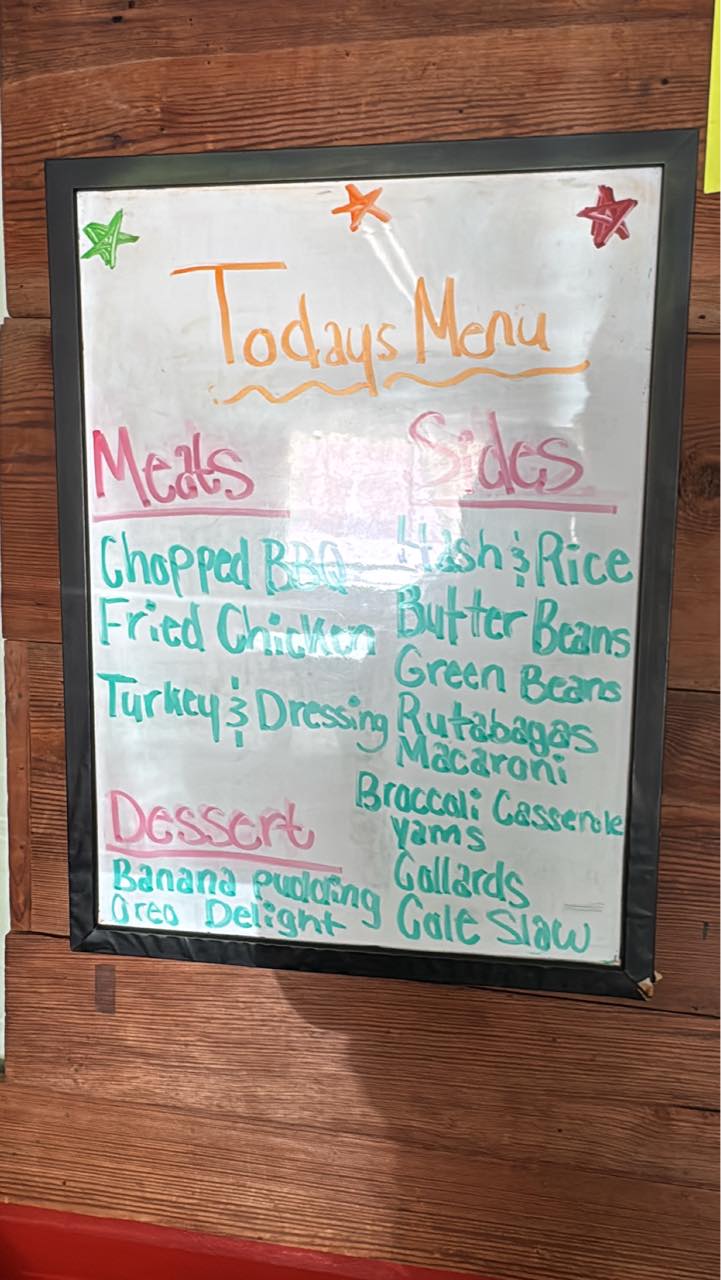 Todays Menu
Meats
Chopped BBQ
Fried Chicken
Turkey & Dressing
Dessert
Banana pudding
Oreo Delight
Sides
Hash & Rice
Butter Beans
Green Beans
Rutabagas
Macaroni
Broccoli Casserole
Yams
Collards
Cole Slaw